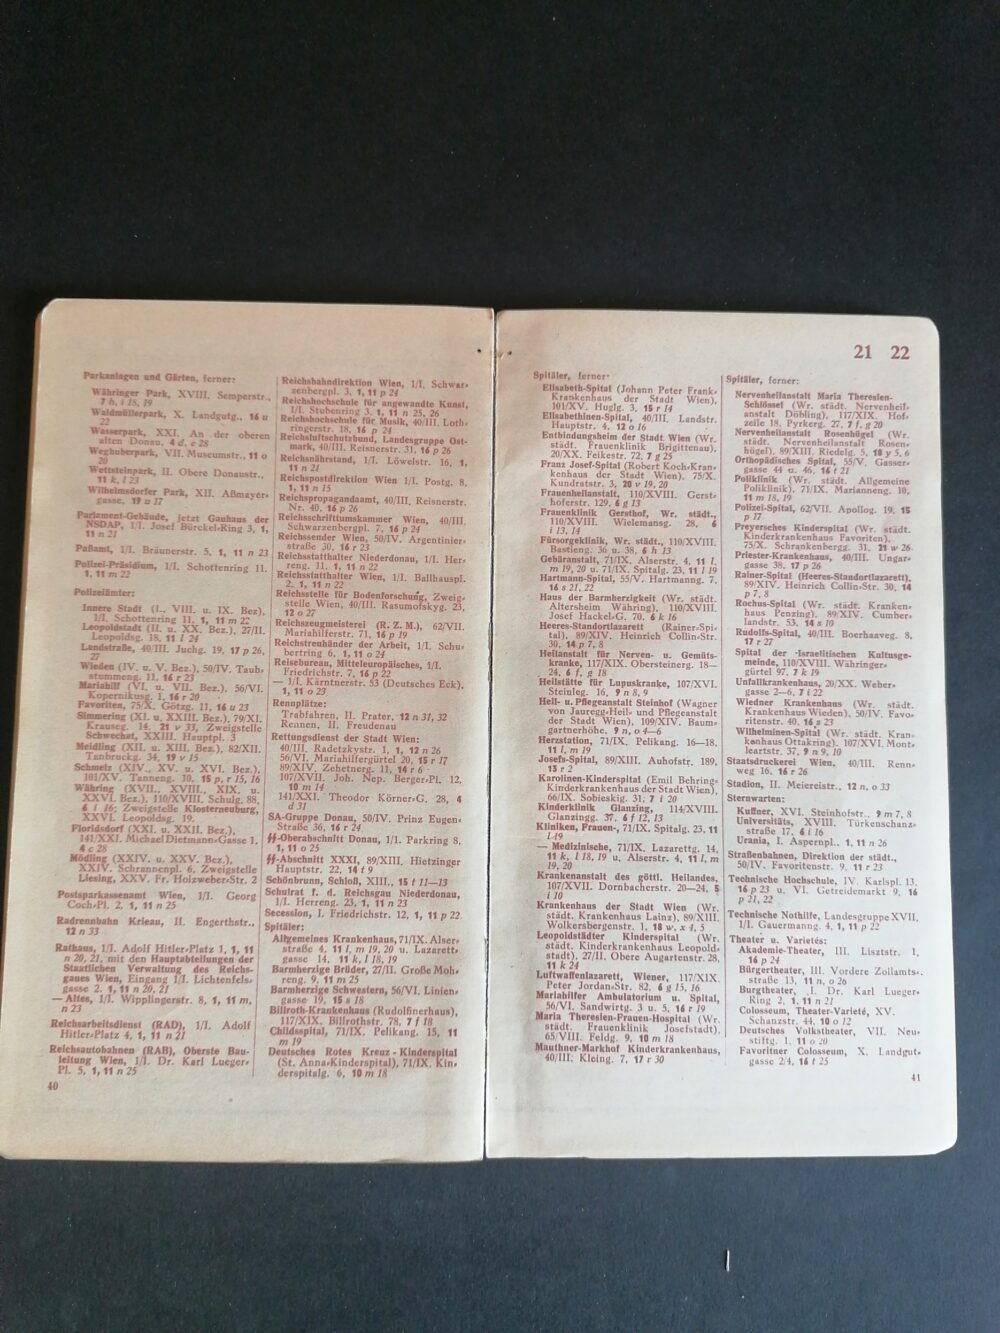 Parkanlagen und Gärten, ferner:
Währinger Park, XVIII. Semperstr.,
7 h, i 18, 19
Waldmüllerpark, X. Landgutg., 16 u
22
Wasserpark, XXI. An der oberen
alten Donau. 4 d, e 28
Weghuberpark, VII. Museumstr., 11 o
20
Wettsteinpark, II. Obere Donaustr.,
11 k, l 23
Wilhelmsdorfer Park, XII. Aßmayer-
gasse, 19 u 17
Parlament-Gebäude, jetzt Gauhaus der
NSDAP, 1/I. Josef Bürckel-Ring 3, 1,
11 n 21
Paßamt, 1/I. Bräunerstr. 5, 1, 11 n 23
Polizei-Präsidium, 1/I. Schottenring 11.
1, 11 m 22
Polizeiämter:
Innere Stadt (I., VIII. u. IX. Bez),
1/I. Schottenring 11, 1, 11 m 22
Leopoldstadt (II. u. XX. Bez.), 27/II.
Leopoldsg. 18, 11 l 24
Landstraße, 40/III. Juchg. 19, 17 p 26,
27
Wieden (IV. u. V. Bez.), 50/IV. Taub-
stummeng. 11, 16 r 23
Mariahilf (VI. u. VII. Bez.), 56/VI.
Kopernikusg. 1, 16 r 20
Favoriten, 75/X. Götzg. 11, 16 u 23
Simmering (XI. u. XXIII. Bez.), 79/XI.
Krauseg. 14, 21 v 33, Zweigstelle
Schwechat, XXIII. Hauptpl. 3
Meidling (XII. u. XIII. Bez.), 82/XII.
Tanbruckg. 34, 19 v 15
Schmelz (XIV., XV. u. XVI. Bez.),
101/XV. Tanneng. 10. 15 p, r 15, 16
Währing (XVII., XVIII., XIX. u.
XXVI. Bez.), 110/XVIII. Schulg. 88,
6 i 16; Zweigstelle Klosterneuburg,
XXVI. Leopoldsg. 19.
Floridsdorf (XXI. u. XXII. Bez.),
141/XXI. Michael Dietmann-Gasse 1,
4 c 28
Mödling (XXIV. u. XXV. Bez.),
XXIV. Schrannenpl. 6, Zweigstelle
Liesing, XXV. Fr. Holzweber-Str. 2
Postsparkassenamt Wien, 1/I. Georg
Coch-Pl. 2, 1, 11 n 25
Radrennbahn Krieau, II. Engerthstr..
12 n 33
Rathaus, 1/I. Adolf Hitler-Platz 1, 1, 11
n 20, 21, mit den Hauptabteilungen der
Staatlichen Verwaltung des Reichs-
gaues Wien, Eingang 1/I. Lichtenfels-
gasse 2. 1, 11 n 20, 21
— Altes, 1/I. Wipplingerstr. 8, 1, 11 m,
n 23
Reichsarbeitsdienst (RAD), 1/I. Adolf
Hitler-Platz 4, 1, 11 n 21
Reichsautobahnen (RAB), Oberste Bau-
leitung Wien, 1/I. Dr. Karl Lueger-
Pl. 5, 1, 11 n 25
40
Reichsbahndirektion Wien, 1/I. Schwar-
zenbergpl. 3, 1, 11 p 24
Reichshochschule für angewandte Kunst,
1/I. Stubenring 3, 1, 11 n 25, 26
Reichshochschule für Musik, 40/III. Loth-
ringerstr. 18, 16 p 24
Reichsluftschutzbund, Landesgruppe Ost-
mark, 40/III. Reisnerstr. 31, 16 p 26
Reichsnährstand, 1/I. Löwelstr. 16, 1,
11 n 21
Reichspostdirektion Wien 1/I. Postg. 8,
1, 11 n 15
Reichspropagandaamt, 40/III. Reisnerstr.
Nr. 40, 16 p 26
Reichsschrifttumskammer Wien, 40/III.
Schwarzenbergpl. 7, 16 p 24
Reichssender Wien, 50/IV. Argentinier-
straße 30, 16 r 23
Reichsstatthalter Niederdonau, 1/I. Her-
reng. 11, 1, 11 n 22
Reichsstatthalter Wien, 1/I. Ballhauspl.
2, 1, 11 n 22
Reichsstelle für Bodenforschung, Zweig-
stelle Wien, 40/III. Rasumofskyg. 23,
12 o 27
Reichszeugmeisterei (R. Z. M.), 62/VII.
Mariahilferstr. 71, 16 p 19
Reichstreuhänder der Arbeit, 1/I. Schu-
bertring 6, 1, 11 o 24
Reisebureau, Mitteleuropäisches, 1/I.
Friedrichstr. 7, 16 p 22
— 1/I. Kärntnerstr. 53 (Deutsches Eck),
1, 11 o 23
Rennplätze:
Trabfahren, II. Prater, 12 n 31, 32
Rennen, II. Freudenau
Rettungsdienst der Stadt Wien:
40/III. Radetzkystr. 1, 1, 12 n 26
56/VI. Mariahilfergürtel 20, 15 r 17
89/XIV. Zehetnerg. 11, 14 r 6
107/XVII. Joh. Nep. Berger-Pl. 12,
10 m 14
141/XXI. Theodor Körner-G. 28, 4
d 31
SA-Gruppe Donau, 50/IV. Prinz Eugen-
Straße 36, 16 r 24
SS-Oberabschnitt Donau, 1/I. Parkring 8,
1, 11 o 25
SS-Abschnitt XXXI, 89/XIII. Hietzinger
Hauptstr. 22, 14 t 9
Schönbrunn, Schloß, XIII., 15 t 11—13
Schulrat f. d. Reichsgau Niederdonau,
1/I. Herreng. 23, 1, 11 n 23
Secession, I. Friedrichstr. 12, 1, 11 p 22.
Spitäler:
Allgemeines Krankenhaus, 71/IX. Alser-
straße 4, 11 l, m 19, 20 u. Lazarett-
gasse 14, 11 k, l 18, 19
Barmherzige Brüder, 27/II. Große Moh-
reng. 9, 11 m 25
Barmherzige Schwestern, 56/VI. Linien-
gasse 19, 15 s 18
Billroth-Krankenhaus (Rudolfinerhaus),
117/XIX. Billrothstr. 78, 7 f 18
Childsspital, 71/IX. Pelikang. 15, 11
m 19
Deutsches Rotes Kreuz - Kinderspital
(St. Anna-Kinderspital), 71/IX. Kin-
derspitalg. 6, 10 m 18
21 22
Spitäler, ferner:
Elisabeth-Spital (Johann Peter Frank-
Krankenhaus der Stadt Wien),
101/XV. Huglg. 3, 15 r 14
Elisabethinen-Spital, 40/III. Landstr.
Hauptstr. 4, 12 o 16
Enthindungsheim der Stadt Wien (Wr.
städt. Frauenklinik Brigittenau),
20/XX. Feikestr. 72, 7 g 25
Franz Josef-Spital (Robert Koch-Kran-
kenhaus der Stadt Wien), 75/X.
Kundratstr. 3, 20 v 19, 20
Frauenheilanstalt, 110/XVIII. Gerst-
hoferstr. 129, 6 g 13
Frauenklinik Gersthof, Wr. städt.,
110/XVIII. Wielemansg. 28, 6
i 13, 14
Fürsorgeklinik, Wr. städt., 110/XVIII.
Bastieng. 36 u. 38, 6 h 13
Gebäranstalt, 71/IX. Alserstr. 4, 11 l,
m 19, 20 u. 71/IX. Spitalg. 23, 11 l 19
Hartmann-Spital, 55/V. Hartmanng. 7,
16 s 21, 22
Haus der Barmherzigkeit (Wr. städt.
Altersheim Währing), 110/XVIII.
Josef Hackel-G. 70, 6 k 16
Heeres-Standortlazarett (Rainer-Spi-
tal), 89/XIV. Heinrich Collin-Str.
30, 14 p 7, 8
Heilanstalt für Nerven- u. Gemüts-
kranke, 117/XIX. Obersteinerg. 18—
24, 6 f, g 18
Heilstätte für Lupuskranke, 107/XVI.
Steinleg. 16, 9 n 8, 9
Heil- u. Pflegeanstalt Steinhof (Wagner
von Jauregg-Heil- und Pflegeanstalt
der Stadt Wien), 109/XIV. Baum-
gartnerhöhe. 9 n, o 4—6
Herzstation, 71/IX. Pelikang. 16—18,
11 l, m 19
Josefs-Spital, 89/XIII. Auhofstr. 189,
13 r 2
Karolinen-Kinderspital (Emil Behring-
Kinderkrankenhaus der Stadt Wien),
66/IX. Sobieskig. 31, 7 i 20
Kinderklinik Glanzing, 114/XVIII.
Glanzingg. 37, 6 f 12, 13
Kliniken, Frauen-, 71/IX. Spitalg. 23, 11
l 19
— Medizinische, 71/IX. Lazarettg. 14,
11 k, l 18, 19 u. Alserstr. 4, 11 l, m
19, 20
Krankenanstalt des göttl. Heilandes,
107/XVII. Dornbacherstr. 20—24, 5
i 10
Krankenhaus der Stadt Wien (Wr.
städt. Krankenhaus Lainz), 89/XIII.
Wolkersbergenstr. 1, 18 w, x 4, 5
Leopoldstädter Kinderspital (Wr.
städt. Kinderkrankenhaus Leopold-
stadt), 27/II. Obere Augartenstr. 28,
11 k 24
Luftwaffenlazarett, Wiener, 117/XIX.
Peter Jordan-Str. 82, 6 g 15, 16
Mariahilfer Ambulatorium u. Spital,
56/VI. Sandwirtg. 3 u. 5, 16 r 19
Maria Theresien-Frauen-Hospital (Wr.
städt. Frauenklinik Josefstadt),
65/VIII. Feldg. 9, 10 m 18
Mauthner-Markhof Kinderkrankenhaus,
40/III. Kleing. 7, 17 r 30
Spitäler, ferner:
Nervenheilanstalt Maria Theresien-
Schlössel (Wr. städt. Nervenheil-
anstalt Döbling), 117/XIX. Hof-
zeile 18, Pyrkerg. 27, 7 f, g 20
Nervenheilanstalt Rosenhügel (Wr.
städt. Nervenheilanstalt Rosen-
hügel), 89/XIII. Riedelg. 5, 18 y 5, 6
Orthopädisches Spital, 55/V. Gasser-
gasse 44 u. 46, 16 t 21
Poliklinik (Wr. städt. Allgemeine
Poliklinik), 71/IX. Marianneng. 10,
11 m 18, 19
Polizei-Spital, 62/VII. Apollog. 19, 15
p 17
Preyersches Kinderspital (Wr. städt.
Kinderkrankenhaus Favoriten),
75/X. Schrankenbergg. 31, 21 w 26
Priester-Krankenhaus, 40/III. Ungar-
gasse 38, 17 p 26
Rainer-Spital (Heeres-Standortlazarett),
89/XIV. Heinrich Collin-Str. 30, 14
p 7, 8
Rochus-Spital (Wr. städt. Kranken-
haus Penzing), 89/XIV. Cumber-
landstr. 53, 14 s 10
Rudolfs-Spital, 40/III. Boerhaaveg. 8,
17 r 27
Spital der Israelitischen Kultusge-
meinde, 110/XVIII. Währinger-
gürtel 97, 7 k 19
Unfallkrankenhaus, 20/XX. Weber-
gasse 2—6, 7 i 22
Wiedner Krankenhaus (Wr. städt.
Krankenhaus Wieden), 50/IV. Favo-
ritenstr. 40, 16 s 23
Wilhelminen-Spital (Wr. städt. Kran-
kenhaus Ottakring), 107/XVI. Mont-
leartstr. 37, 9 n 9, 10
Staatsdruckerei Wien, 40/III. Renn-
weg 16, 16 r 26
Stadion, II. Meiereistr., 12 n, o 33
Sternwarten:
Kuffner, XVI. Steinhofstr., 9 m 7, 8
Universitäts, XVIII. Türkenschanz-
straße 17, 6 i 16
Urania, I. Aspernpl., 1, 11 n 26
Straßenbahnen, Direktion der städt.,
50/IV. Favoritenstr. 9, 11 r 23
Technische Hochschule, IV. Karlspl. 13,
16 p 23 u. VI. Getreidemarkt 9, 16
p 21, 22
Technische Nothilfe, Landesgruppe XVII,
1/I. Gauermanng. 4, 1, 11 p 22
Theater u. Varietés:
Akademie-Theater, III. Lisztstr. 1,
16 p 24
Bürgertheater, III. Vordere Zollamts-
straße 13, 11 n, o 26
Burgtheater, I. Dr. Karl Lueger-
Ring 2, 1, 11 n 21
Colosseum, Theater-Varieté, XV.
Schanzstr. 44, 10 o 12
Deutsches Volkstheater, VII. Neu-
stiftg. 1, 11 o 20
Favoritner Colosseum, X. Landgut-
gasse 2/4, 16 t 25
41